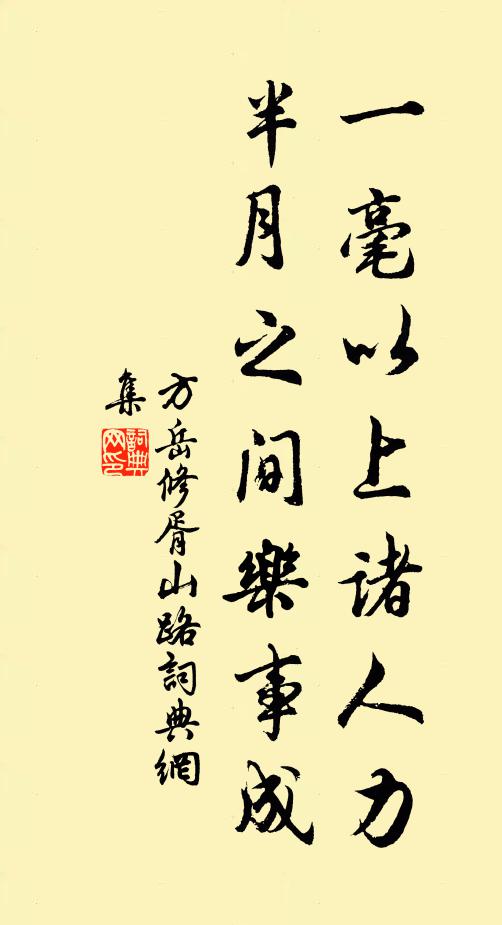 一毫以上諸人力
半月之間樂事成
方岳修胥山路詞典網
集
詞典
网印